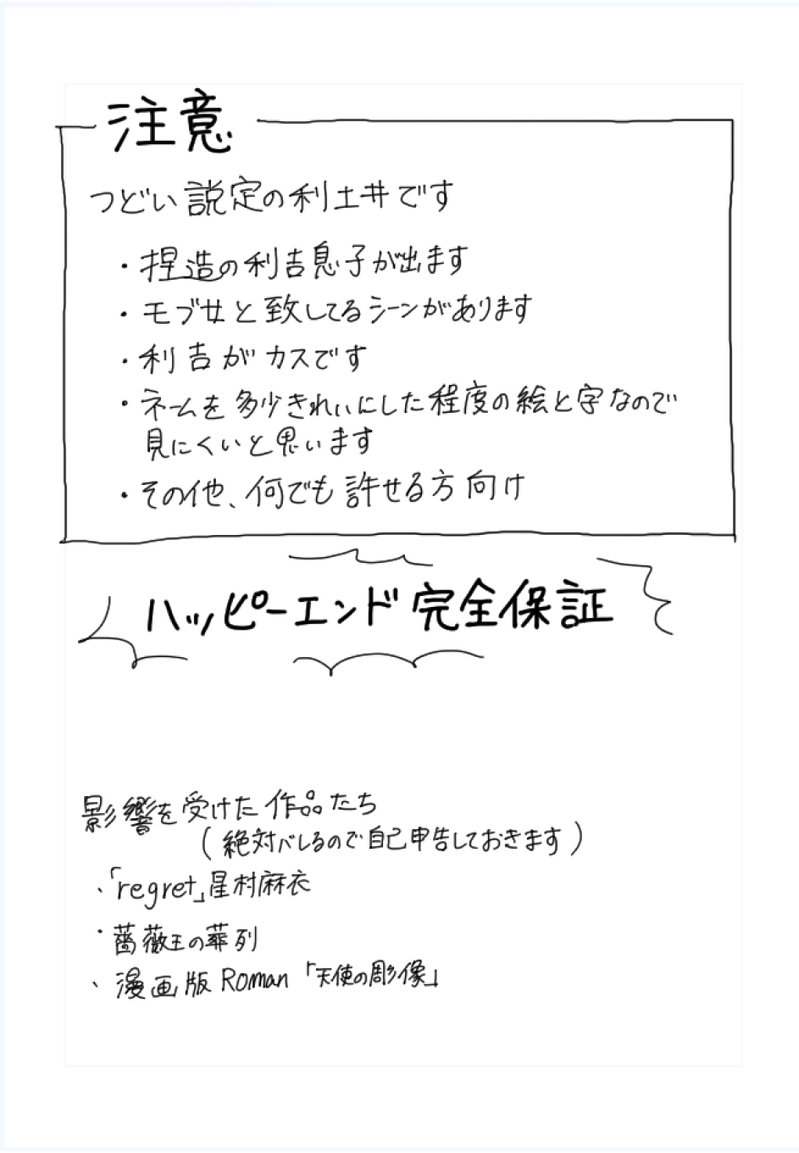 注意
つどい説定の利土井です
・捏造の利吉息子が出ます
・モブ女と致してるシーンがあります
・利吉がカスです
・ネームを多少きれいにした程度の絵と字なので
見にくいと思います
・その他、何でも許せる方向け
ハッピーエンド完全保証
影響を受けた作品たち
(絶対バレるので自己申告しておきます)
・「regret」星村麻衣
・薔薇王の葬列
・漫画版Roman「天使の彫像」